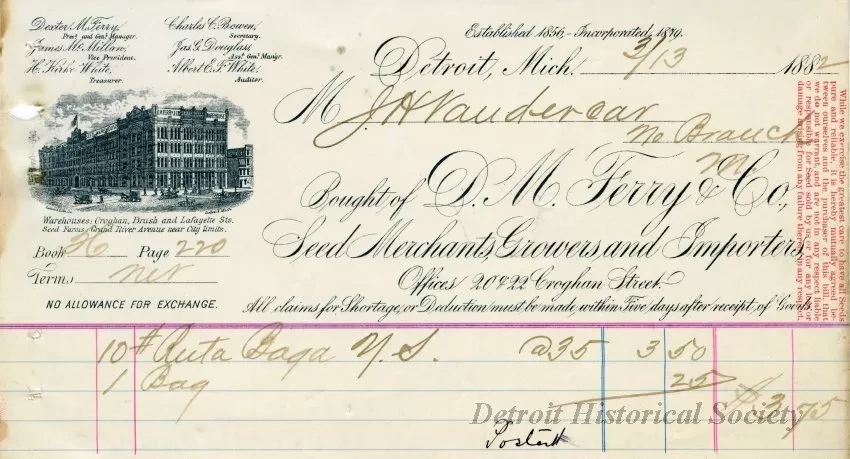 Dexter M. Ferry,
Pres't and Gen'l Manager.
James Mc Millan,
Vice President.
H. Kirke White,
Treasurer.
Charles C. Bowen,
Secretary.
Jas. G. Douglass,
Ass't Gen'l Man'gr.
Albert E. F. White,
Auditor.
Established 1856,- Incorporated, 1879.
Detroit, Mich. 3/13 1882
M J. H Vandercar
No Branch
M
Bought of D. M. Ferry & Co.,
Seed Merchants, Growers, and Importers,
Offices 20 & 22 Croghan Street.
Warehouses: Croghan, Brush and Lafayette Sts.
Seed Farms, Grand River Avenue near City Limits.
Book 36 Page 220
Terms net
NO ALLOWANCE FOR EXCHANGE.
All claims for Shortage, or Deduction must be made within Five days after receipt of Goods.
While we exercise the greatest care to have all Seeds
pure and reliable, it is hereby mutually agreed be-
tween ourselves and the purchaser of this bill, that
we do not warrant, and are not in any respect liable
or responsible for Seed sold by us, or for any loss or
damage arising from any failure thereof in any respect.
10 # Ruta Baga Y. S. @ 35 3 50
1 Bag 25 $ 3.75
Detroit Historical Society